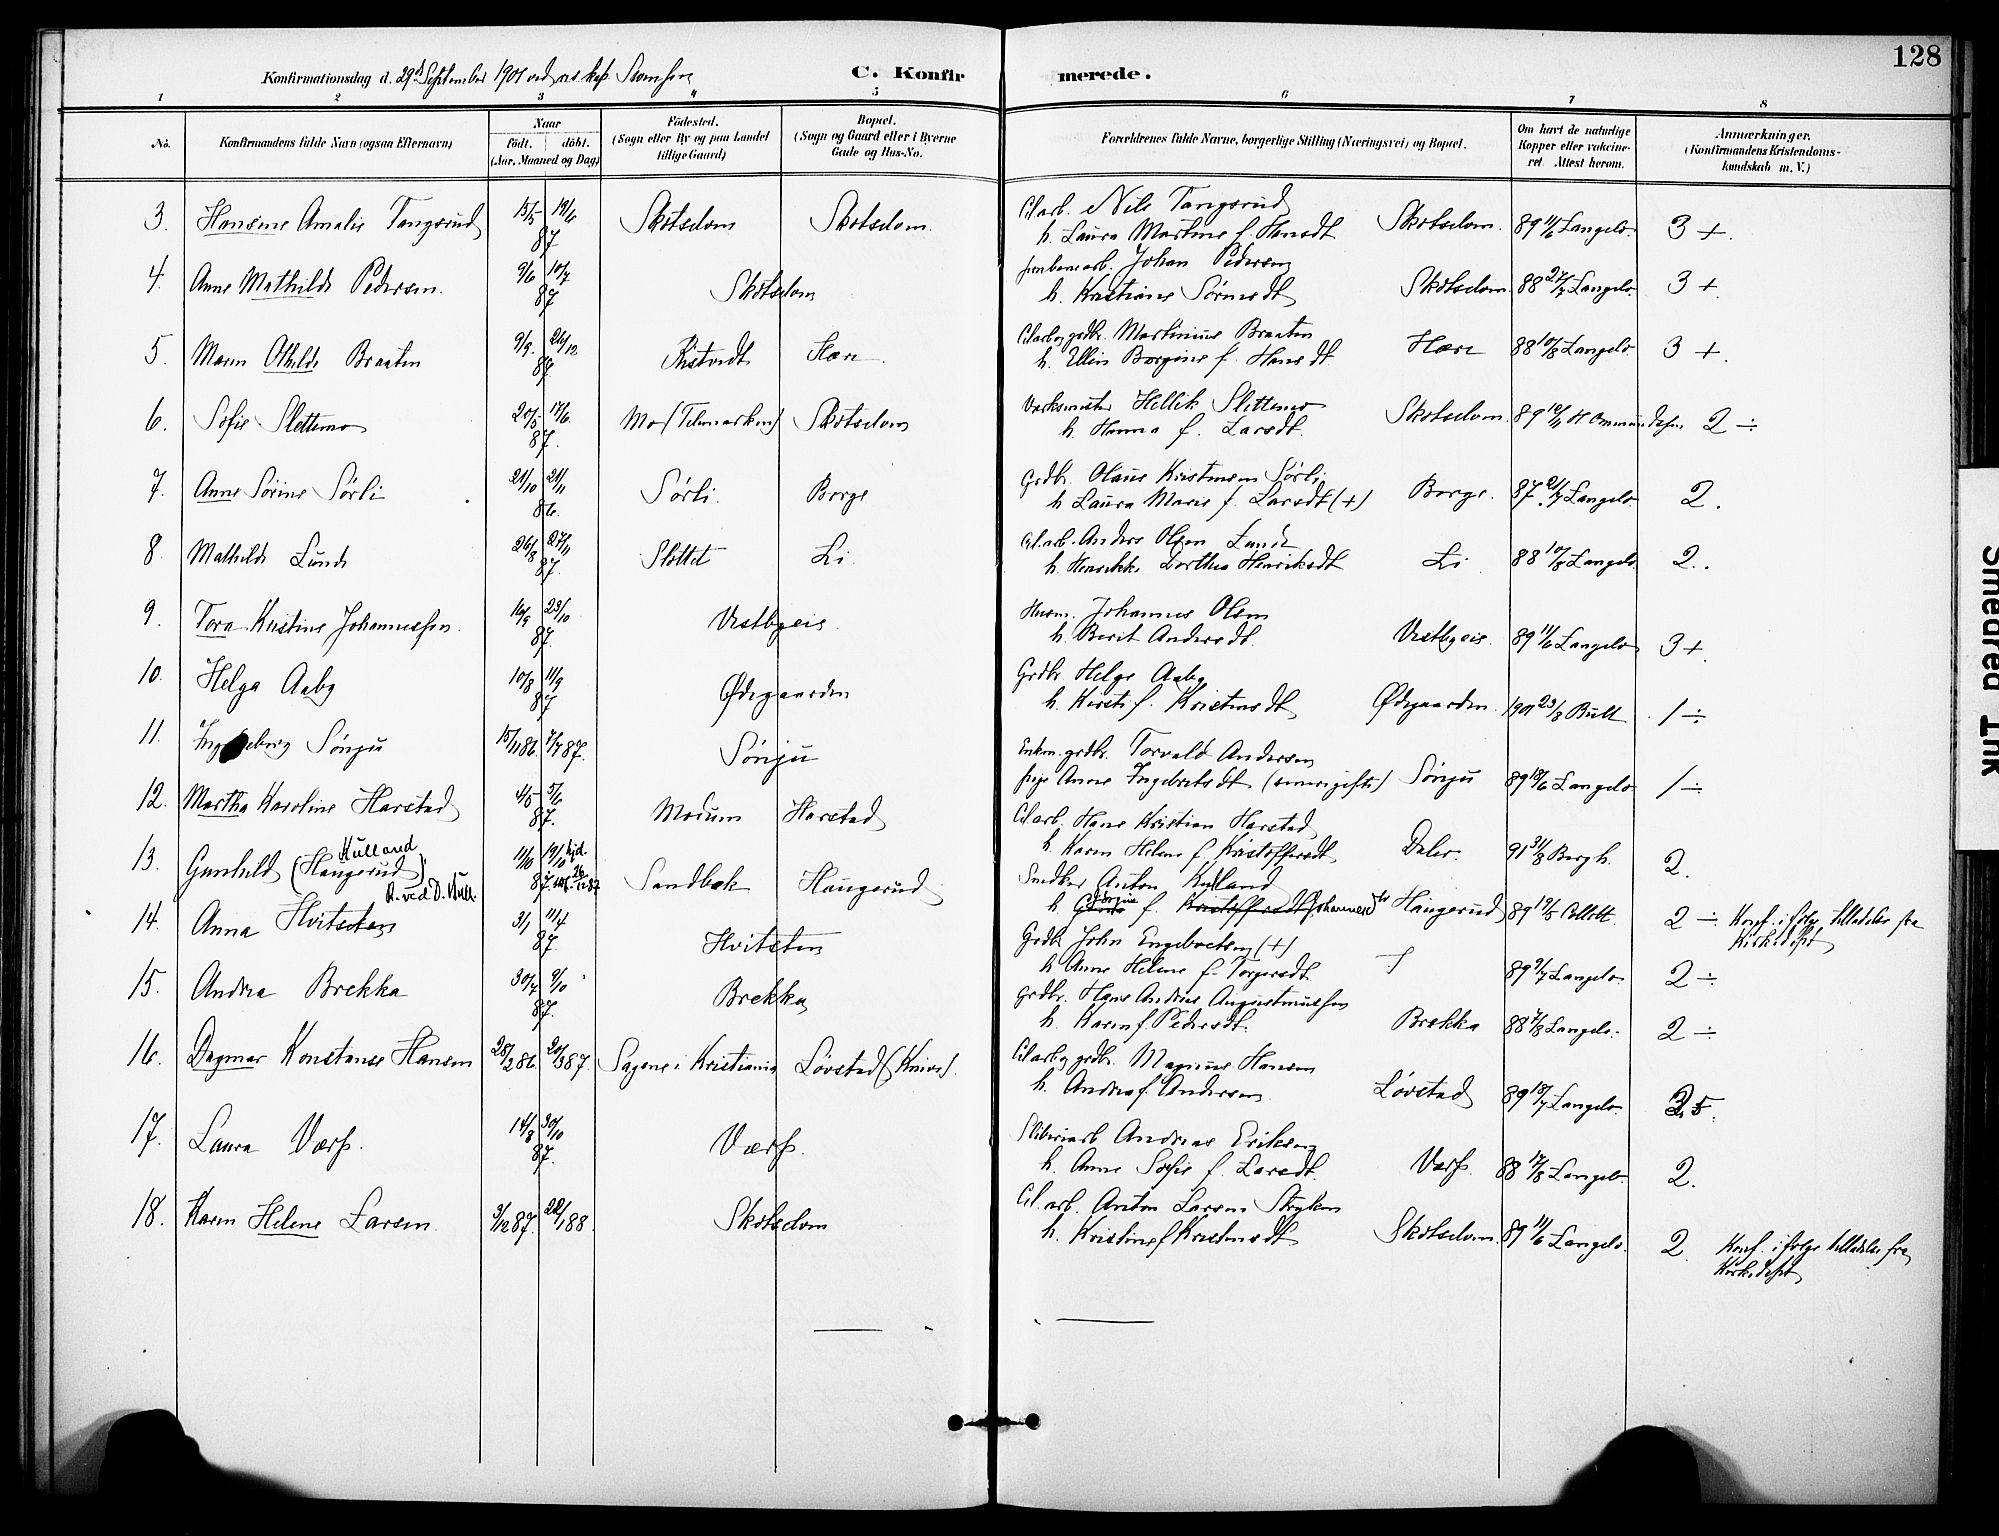 128
Konfirmationsdag d. 29de September 1901 ved
C. Konfirmerede.
1 2 3 4 5 6 7 8
No.
Konfirmandens fulde Navn (ogsaa Efternavn)
Naar
födt. döbt.
(Aar, Maaned og Dag)
Födested.
(Sogn eller By og paa Landet
tillige Gaard)
Bopæl.
(Sogn og Gaard eller i Byerne
Gade og Hus-No.
Forældrenes fulde Navne, borgerlige Stilling (Næringsvei) og Bopæl.
Om havt de naturlige
Kopper eller vakcine-
ret. Attest herom.
Anmærkninger.
(Konfirmandens Kristendoms-
kundskab m. V.)
3. Hansine Amalie Tangerud 15/5 19/6 87 Skotselven Skotselven. Cel. arb. Nils Tangerud
h. Laura Martine f. Hansdt Skotselven. 89 11/6 Langelv. 3 +.
4. Anne Mathilde Pedersen. 9/6 10/7 87 Skotselven Johan Pedersen
h. Kristiane Sörensdt Skotselven 88 27/7 Langelv. 3 +.
5. Maren Othilde Braaten 9/9. 26/12 87. Kistvedt Hære. Cel arb og grdbr. Martinius Braaten
h. Ellen Bergine f. Hansdt. Hære 88 10/8 Langelv. 3 +.
6. Sofie Slettemo 20/5 17/6. 87. Mo (Telemarken) Skotselven Verksmester Hellik Slettemo
h. Hanna f. Larsdt. Skotselven 89 10/11 H Ommundsen 2 ÷
7. Anne Sörine Sörli 21/10 21/11 86. Sörli. Borge Grdbr. Olaus Kristensen Sörli
h Laura Marie f. Larsdt (+) Borge. 87 21/7 Langelv. 2.
8. Mathilde Lund 26/8 27/11 87. Slottet Li. Cel. arb. Anders Olsen Lund
h. Henrikke Dorthea Henriksdt Li 88 10/8 Langelv. 2.
9. Tora Kristine Johannessen. 16/9 23/10 87. Vestbyeie. Husm. Johannes Olsen
h. Berit Andersdt. Vestbyeie. 89 11/6 Langelv 3 +.
10. Helga Aaby 10/8 11/9 87 Ødegaarden Grdbr Helge Aaby
h. Kersti f. Kristensdt Ødegaarden. 1901 23/8 Bull 1 ÷
11. Ingeborg Sönju 15/11 86. 7/7 87. Sönju Enkem. grdbr. Torvald Andersen
Anne Ingebretsdt Sönju 89 18/6 Langelv 1 ÷
12. Martha Karoline Harstad 4/5 5/6 87. Modum Harstad Cel arb. Hans Kristian Harstad
h. Karen Helene f. Kristoffersdt Daler. 91 31/8 Bergh. 2.
13. Gunhild (Haugerud) Kulland R. ved D. Bull. 11/10 19/10 hjd. 87. 26/12 87 Sandbæk Haugerud Snedker Anton Kulland
h f. Kristoffersdt Johannesdt Haugerud 89 19/8 Collett. 2 ÷ Konf. i följe tilladelse fra
Kirkedept
14. Anna Hvitsten 3/1 11/4 87. Hvitsten Grdbr John Engebretsen (+)
h Anne Helene f. Torgersdt. 89 9/7 Langelv. 2 ÷
15. Andrea Brekka 30/7 9/10 87. Brekka Grdbr. Hans Andreas Augustinussen
h. Karen f. Pedersdt. Brekka 88 7/8 Langelv. 2 ÷
16. Dagmar Konstanse Hansen 28/2 86. 20/3 87. Sagene i Kristiania Lövstad (Kniv). Cel arb og grdbr. Magnus Hansen
h. Andrea f. Andersen Lövstad 89 18/7 Langelv. 2,5.
17. Laura Værp. 14/8 30/10 87. Værp. Sliberiarb Andreas Eriksen
h. Anne Sofie f. Larsdt. Værp. 88 17/8 Langelv. 2.
18. Karen Helene Larsen 3/12 87. 22/1 88. Skotselven Cel. arb. Anton Larsen Stryken
h. Kristine f Kristensdt Skotselven. 89 11/6 Langelv. 2. Konf. i följe tilladelse fra
Kirkedept
Smedred Ink